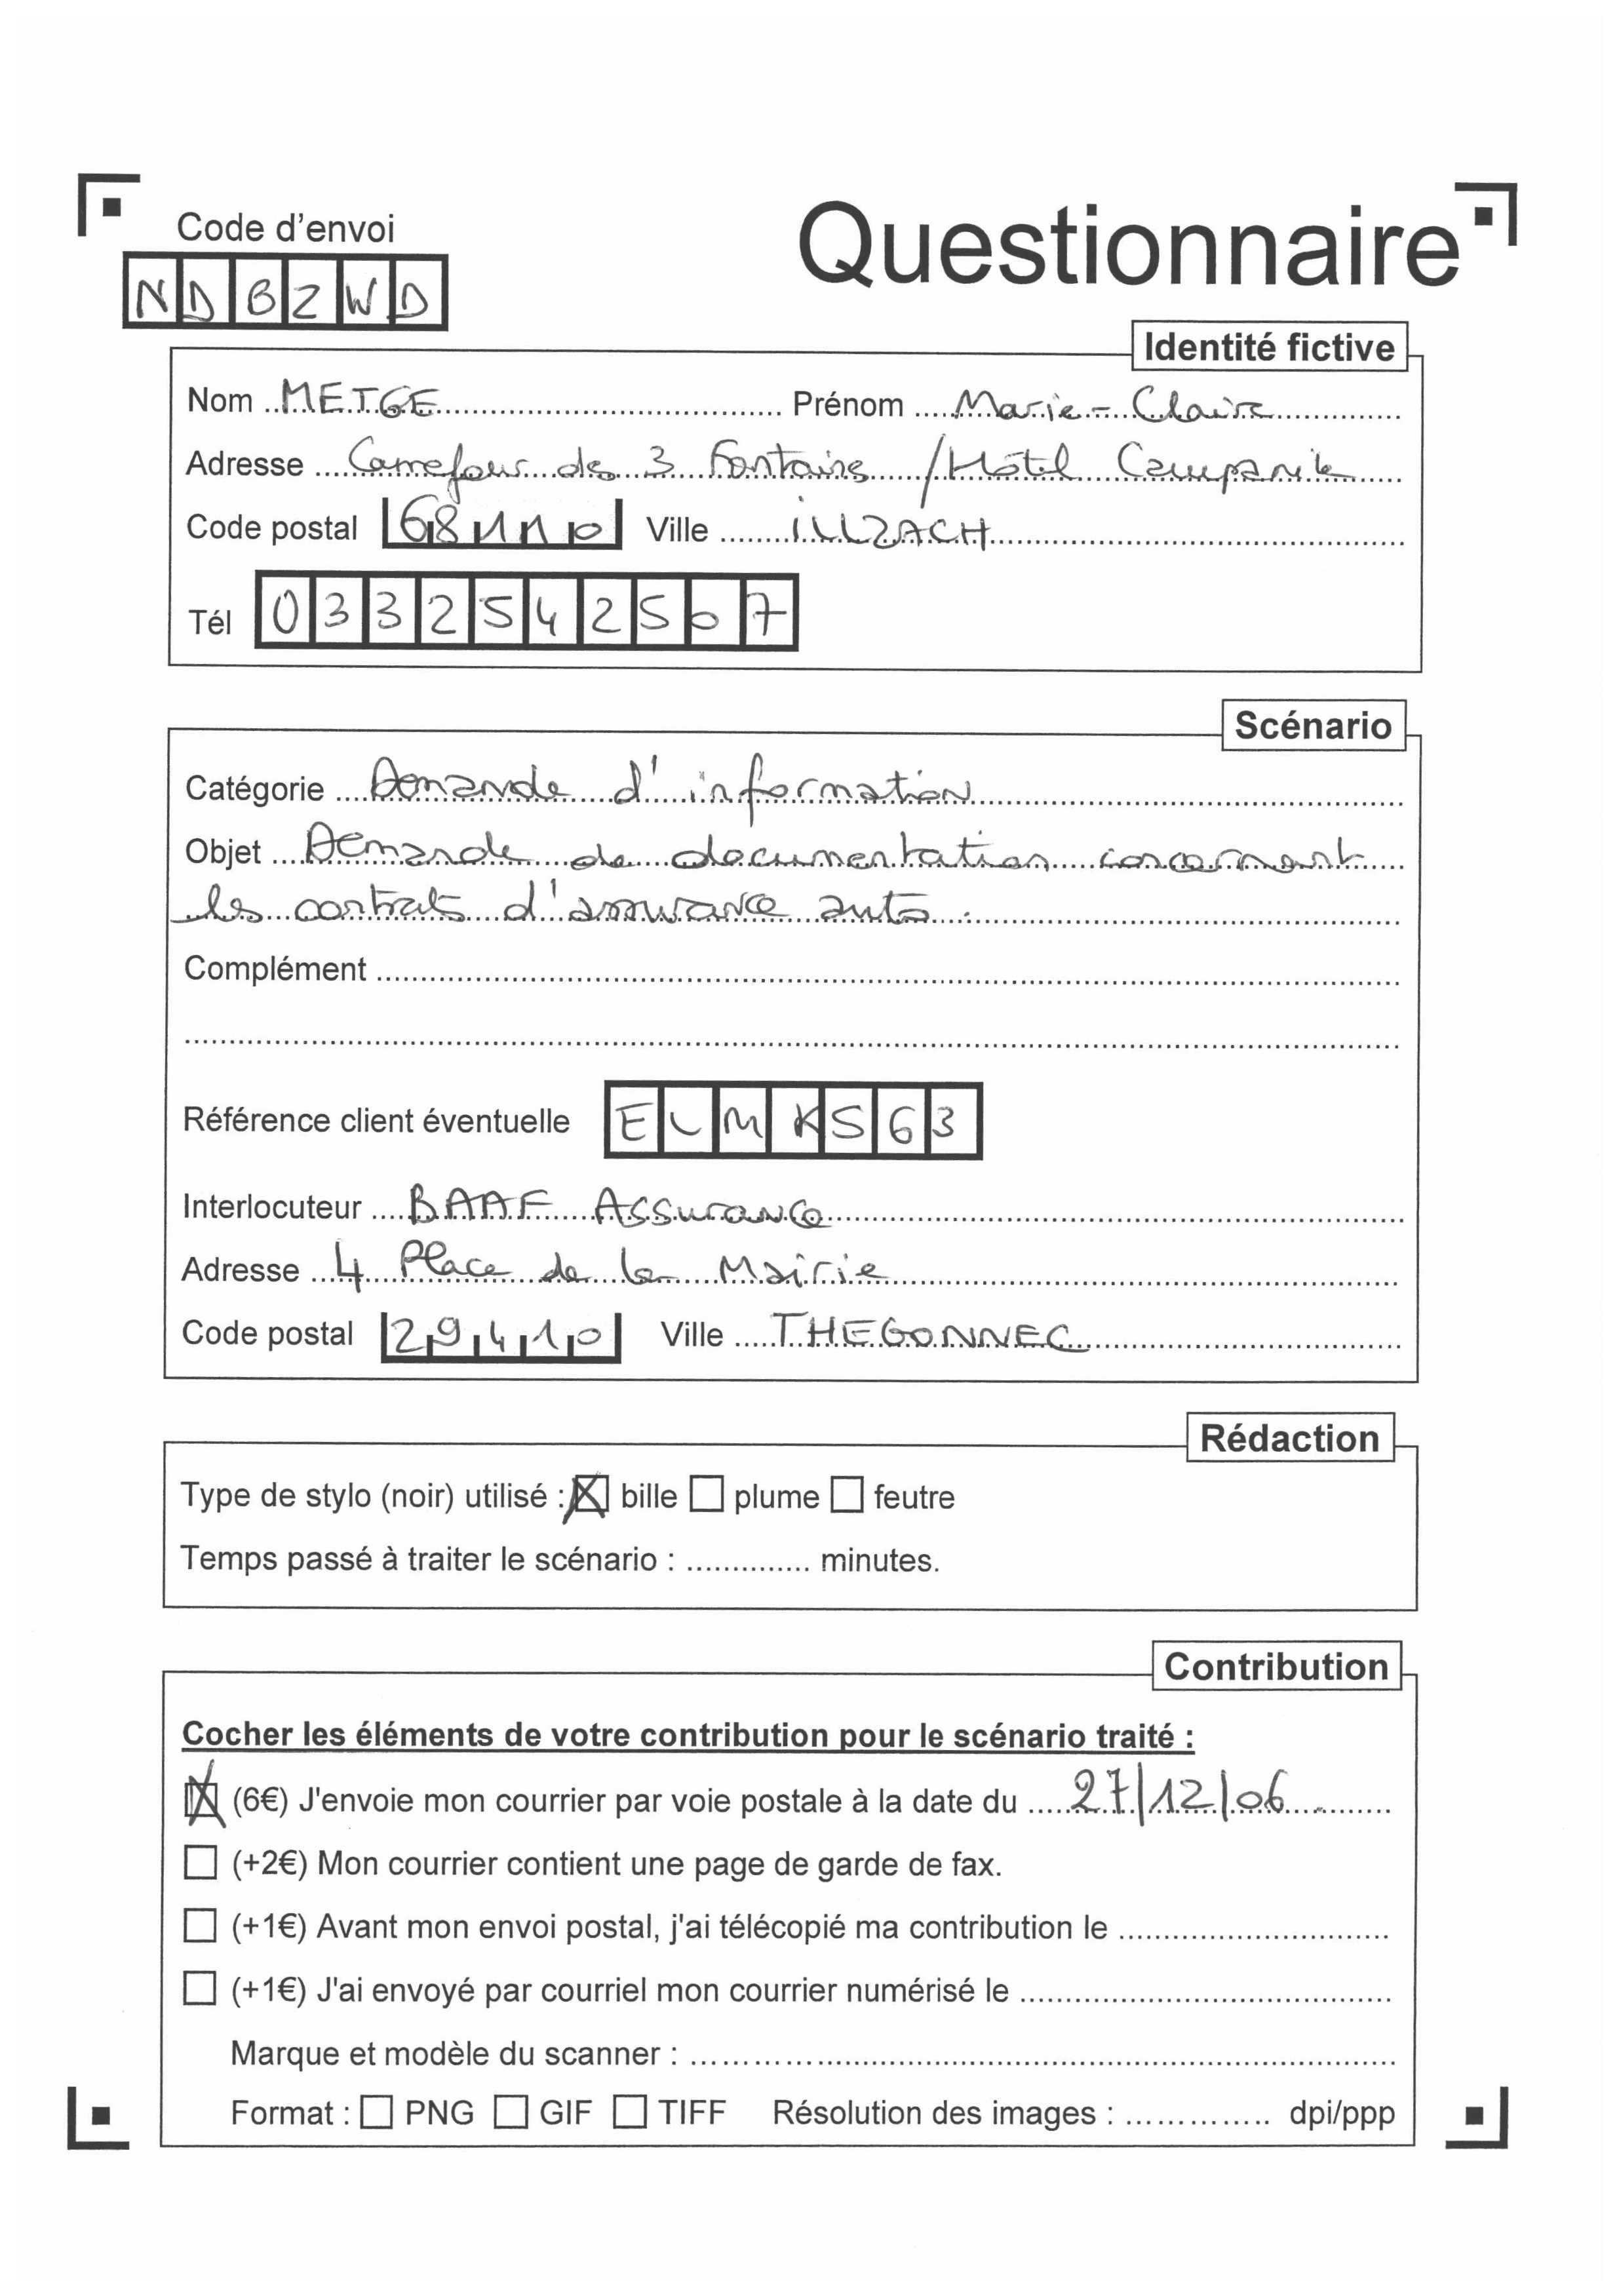 Code d'envoi
Questionnaire
NDBZWD
Identité fictive
Nom METGE Prénom Marie-Claire
Adresse Carrefour des 3 Fontaines / Hôtel Campanile
Code postal 68110 Ville ILLZACH
Tél 0332542567
Scénario
Catégorie Demande d'information
Objet Demande de documentation concernant
les contrats d'assurance auto.
Complément
Référence client éventuelle ELMKS63
Interlocuteur BAAF Assurance
Adresse 4 Place de la Mairie
Code postal 29410 Ville THEGONNEC
Rédaction
Type de stylo (noir) utilisé : bille plume feutre
Temps passé à traiter le scénario : .............. minutes.
Contribution
Cocher les éléments de votre contribution pour le scénario traité :
(6€) J'envoie mon courrier par voie postale à la date du 27/12/06
(+2€) Mon courrier contient une page de garde de fax.
(+1€) Avant mon envoi postal, j'ai télécopié ma contribution le
(+1€) J'ai envoyé par courriel mon courrier numérisé le
Marque et modèle du scanner :
Format : PNG GIF TIFF Résolution des images : .............. dpi/ppp